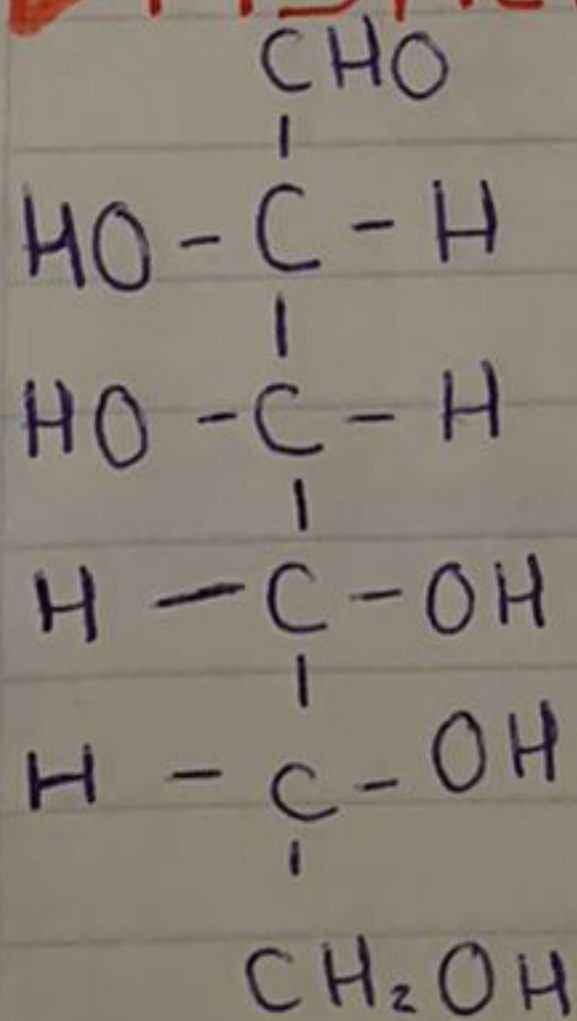 CHO
HO - C - H
HO - C - H
H - C - OH
H - C - OH
CH₂OH